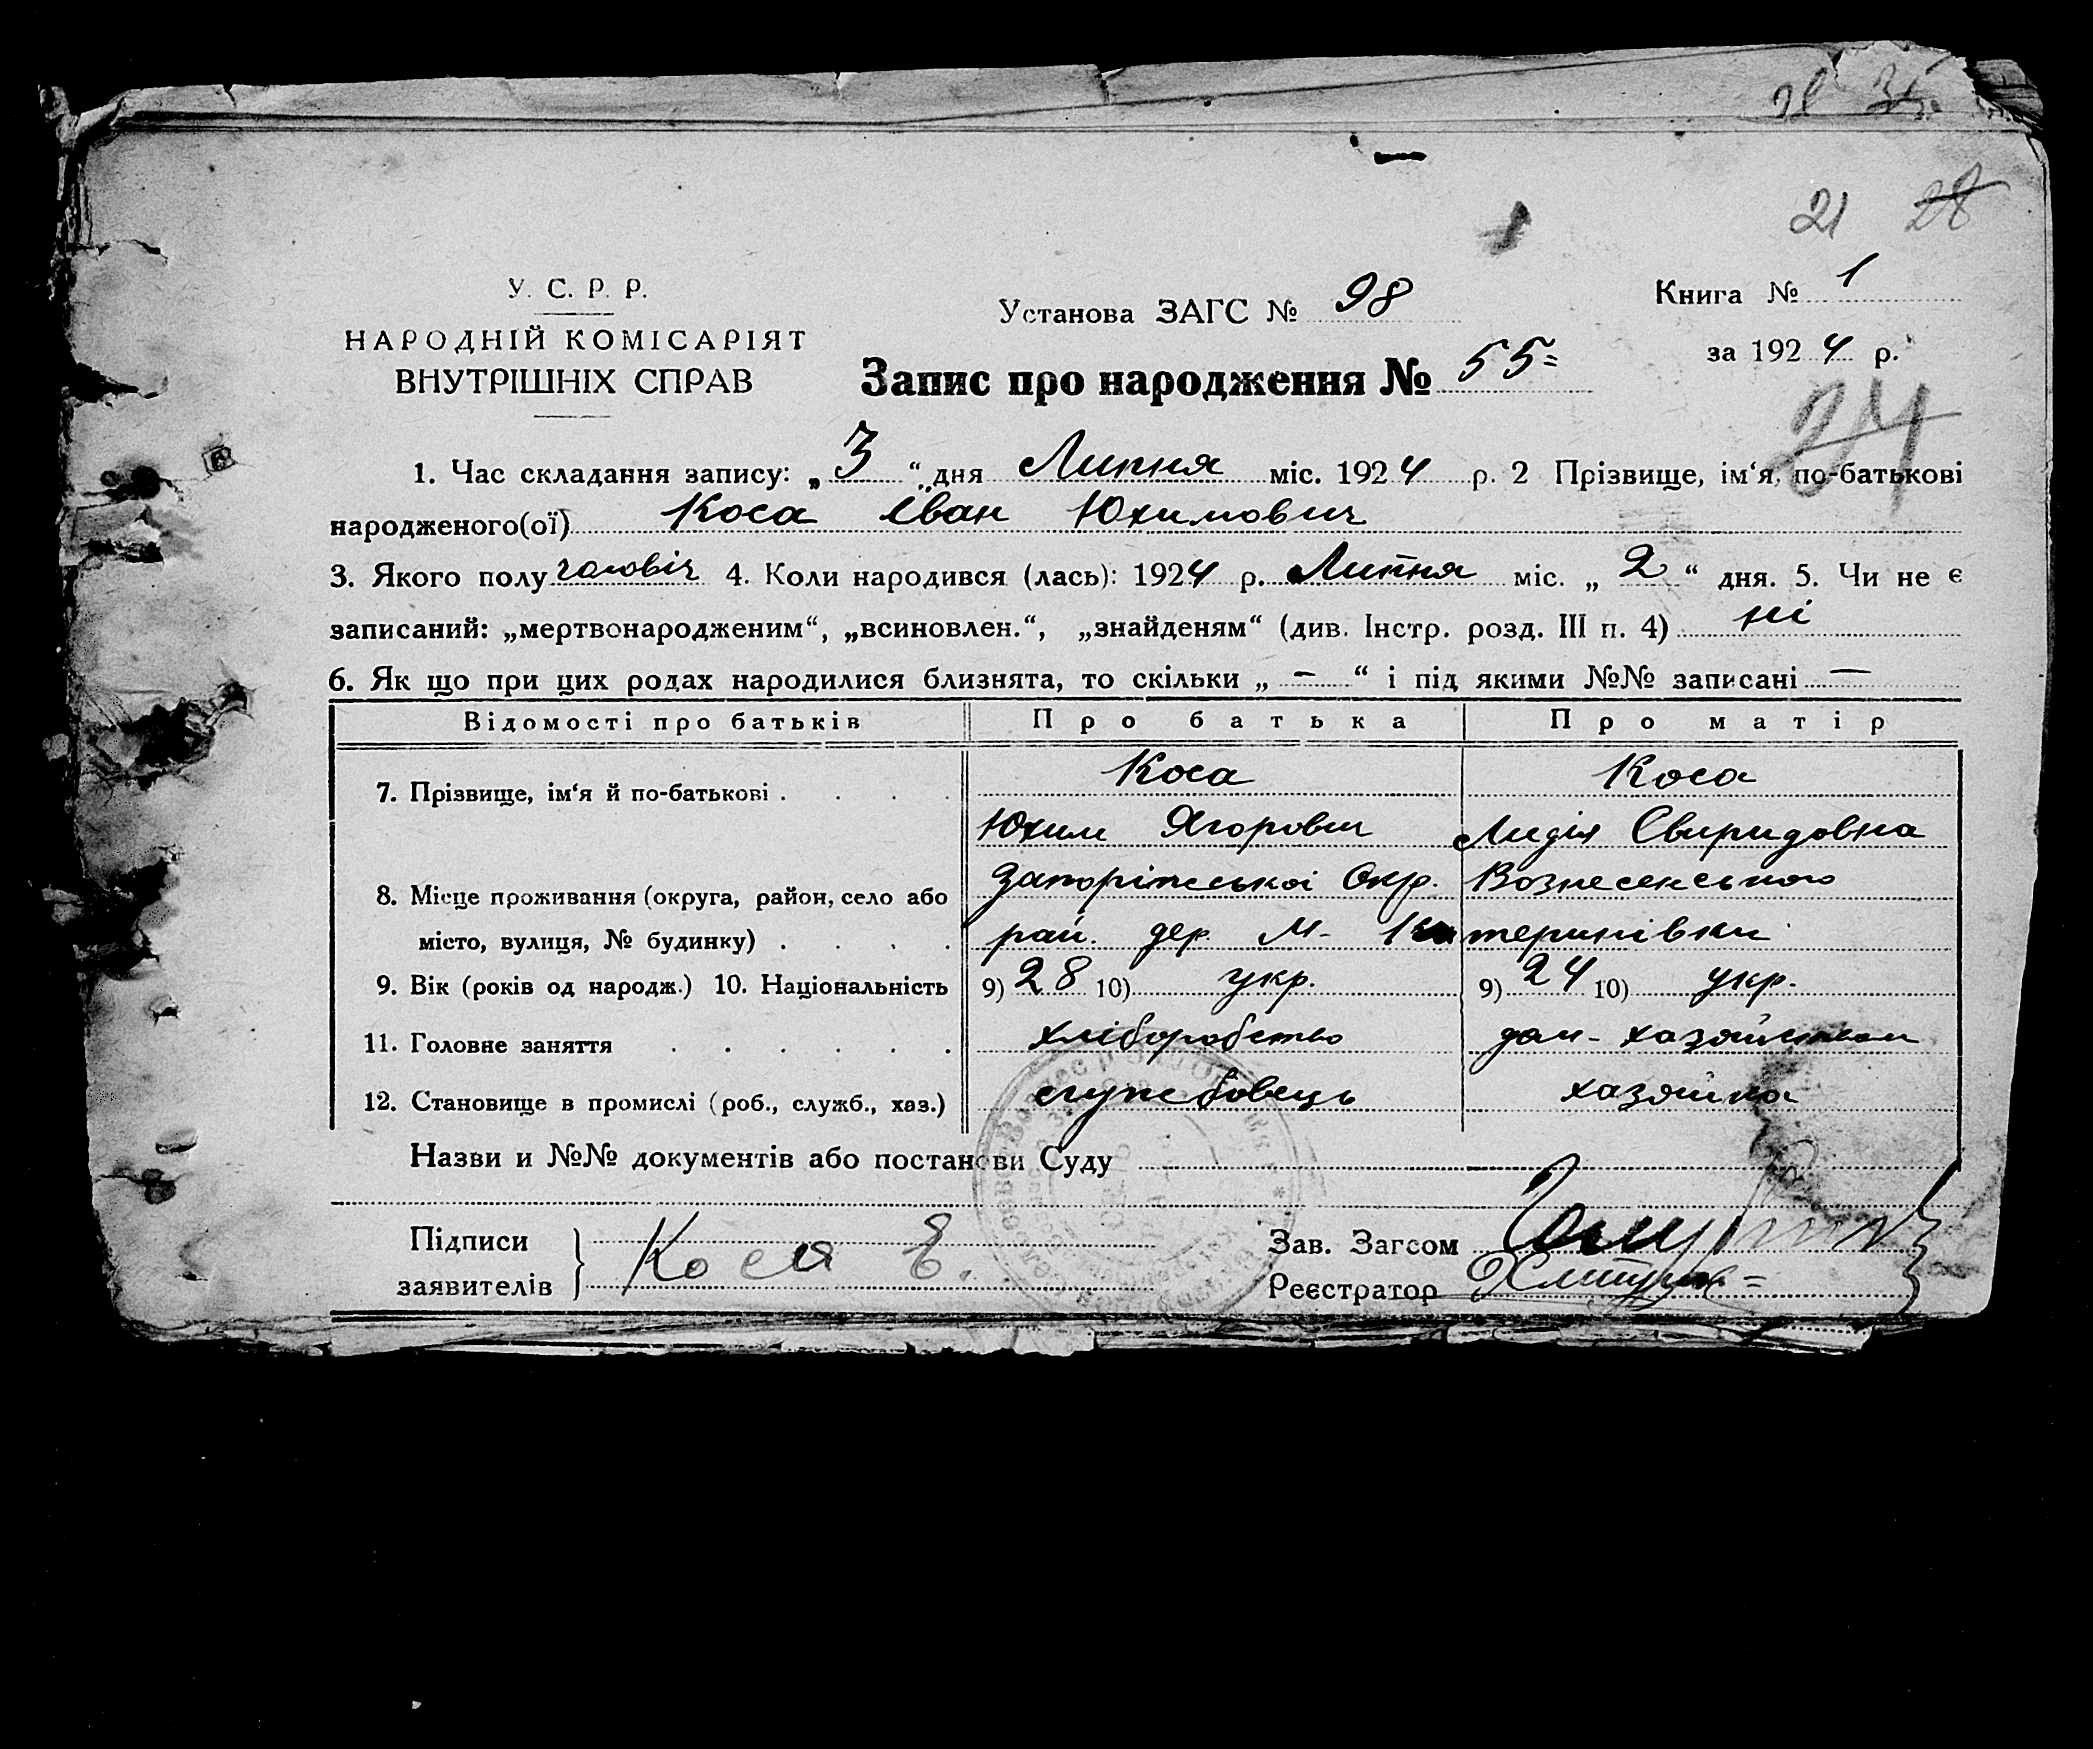 21 28
У. С. Р. Р.
НАРОДНІЙ КОМІСАРІЯТ
ВНУТРІШНІХ СПРАВ
Установа ЗАГС № 98
Запис про народження № 55
Книга № 1
за 1924 р.
24
1. Час складання запису: „3“ дня Липня міс. 1924 р. 2 Прізвище, ім‘я, по-батькові
народженого(ої) Коса Іван Юхимович
3. Якого полу чоловіч 4. Коли народився (лась): 1924 р. Липня міс. „2“ дня. 5. Чи не є
записаний: „мертвонародженим“, „всиновлен.“, „знайденям“ (див. Інстр. розд. III п. 4) ні
6. Як що при цих родах народилися близнята, то скільки „ — “ і під якими №№ записані —
Відомості про батьків Про батька Про матір
7. Прізвище, ім‘я й по-батькові . . . . Коса Коса
Юхим Ягорович Лидія Свиридовна
8. Місце проживання (округа, район, село або Запоріжської Окр. Вознесенського
місто, вулиця, № будинку) . . . . рай. дер. М- Катеринівки
9. Вік (років од народж.) 10. Національність 9) 28 10) укр. 9) 24 10) укр.
11. Головне заняття . . . . . . хліборобство дом- хазяйством
12. Становище в промислі (роб., служб., хаз.) службовець хазяйка
Назви и №№ документів або постанови Суду
Підписи
заявителів } Коса Е.
Зав. Загсом
Реєстратор